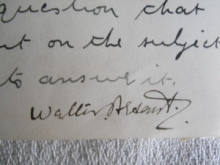 question that
ut on the subject
to answer it.
Walter Besant